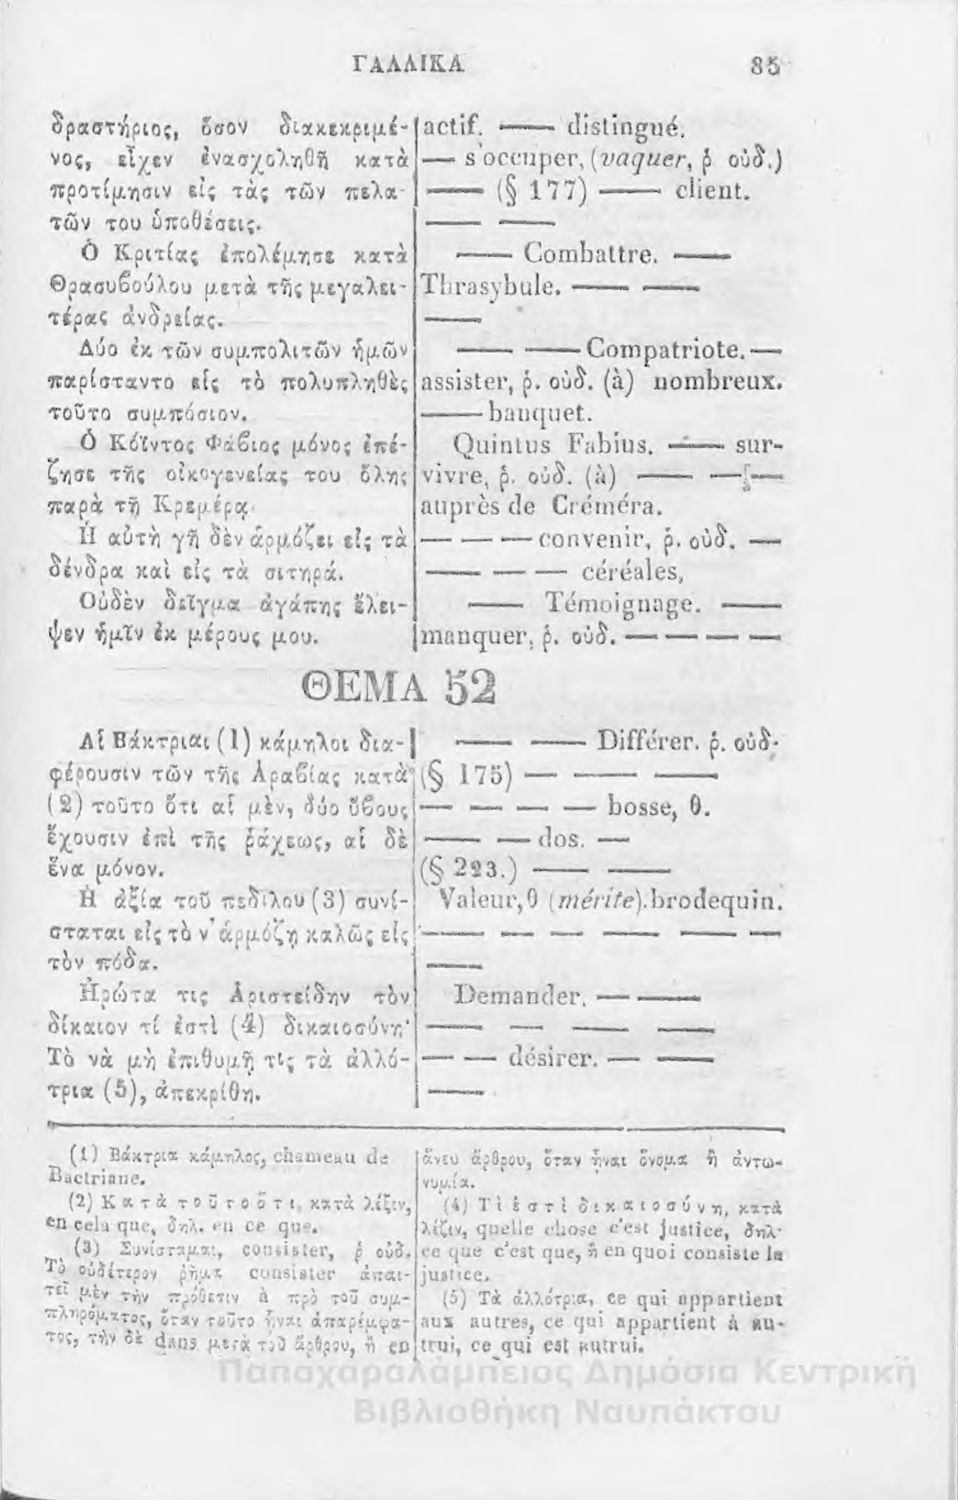 ΓΑΛΛΙΚΑ 85
δραστήριος, ὅσον διακεκριμέ-
νος, εἶχεν ἐνασχοληθῆ κατὰ
προτίμησιν εἰς τὰς τῶν πελα-
τῶν του ὑποθέσεις.
Ὁ Κριτίας ἐπολέμησε κατὰ
Θρασυβούλου μετὰ τῆς μεγαλει-
τέρας ἀνδρείας.
Δύο ἐκ τῶν συμπολιτῶν ἡμῶν
παρίσταντο εἰς τὸ πολυπληθὲς
τοῦτο συμπόσιον.
Ὁ Κόϊντος Φάβιος μόνος ἐπέ-
ζησε τῆς οἰκογενείας του ὅλης
παρὰ τῇ Κρεμέρᾳ.
Ἡ αὐτὴ γῆ δὲν ἁρμόζει εἰς τὰ
δένδρα καὶ εἰς τὰ σιτηρά.
Οὐδὲν δεῖγμα ἀγάπης ἔλει-
ψεν ἡμῖν ἐκ μέρους μου.
actif. —— distingué.
— s'occuper, (vaquer, ῥ οὐδ.)
—— (§ 177) —— client.
—— ——
—— Combattre. ——
Thrasybule. —— ——
——
—— —— Compatriote. —
assister, ῥ. οὐδ. (à) nombreux.
—— banquet.
Quintus Fabius. —— sur-
vivre, ῥ. οὐδ. (à) —— ——
auprès de Créméra.
— — — convenir, ῥ. οὐδ. —
—— — — céréales,
—— Témoignage. ——
manquer, ῥ. οὐδ. — — — —
ΘΕΜΑ 52
Αἱ Βάκτριαι (1) κάμηλοι δια-
φέρουσιν τῶν τῆς Ἀραβίας κατὰ
(2) τοῦτο ὅτι αἱ μὲν, δύο ὕβους
ἔχουσιν ἐπὶ τῆς ῥάχεως, αἱ δὲ
ἕνα μόνον.
Ἡ ἀξία τοῦ πεδίλου (3) συνί-
σταται εἰς τὸ ν' ἁρμόζῃ καλῶς εἰς
τὸν πόδα.
Ἠρώτα τις Ἀριστείδην τὸν
δίκαιον τί ἐστὶ (4) δικαιοσύνη·
Τὸ νὰ μὴ ἐπιθυμῇ τις τὰ ἀλλό-
τρια (5), ἀπεκρίθη.
—— —— Différer. ῥ. οὐδ·
(§ 175) — —— ——
— — — — bosse, θ.
—— — dos. —
(§ 223.) —— ——
Valeur, θ (mérite). brodequin.
—— — — —— —— —
——
Demander. — ——
—— — —— ——
— — désirer. — ——
——
(1) Βάκτρια κάμηλος, chameau de
Bactriane.
(2) Κατὰ τοῦτο ὅτι, κατὰ λέξιν,
en cela que, δηλ. en ce que.
(3) Συνίσταμαι, consister, ῥ οὐδ.
Τὸ οὐδέτερον ῥῆμα consister ἀπαι-
τεῖ μὲν τὴν πρόθεσιν à πρὸ τοῦ συμ-
πληρώματος, ὅταν τοῦτο ἦναι ἀπαρέμφα-
τος, τὴν δὲ dans μετὰ τοῦ ἄρθρου, ἢ en
ἄνευ ἄρθρου, ὅταν ἦναι ὄνομα ἢ ἀντω-
νυμία.
(4) Τί ἐστὶ δικαιοσύνη, κατὰ
λέξιν, quelle chose c'est justice, δηλ·
ce que c'est que, ἢ en quoi consiste la
justice.
(5) Τὰ ἀλλότρια, ce qui appartient
aux autres, ce qui appartient à au-
trui, ce qui est autrui.
Παπαχαραλάμπειος Δημόσια Κεντρική
Βιβλιοθήκη Ναυπάκτου